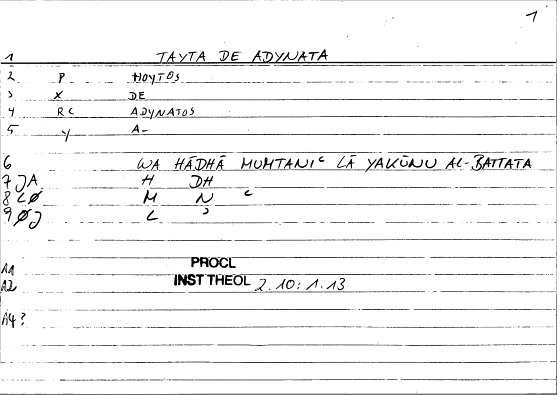 1
1 TAYTA DE ADYNATA
2 P HOYTOS
3 X DE
4 RC ADYNATOS
5 Y A-
6 WA HĀDHĀ MUMTANIᶜ LĀ YAKŪNU AL-BATTATA
7 JA H DH
8 LØ M N ᶜ
9 ØJ L ʾ
A1 PROCL
A2 INST THEOL 2.10:1.13
A4?